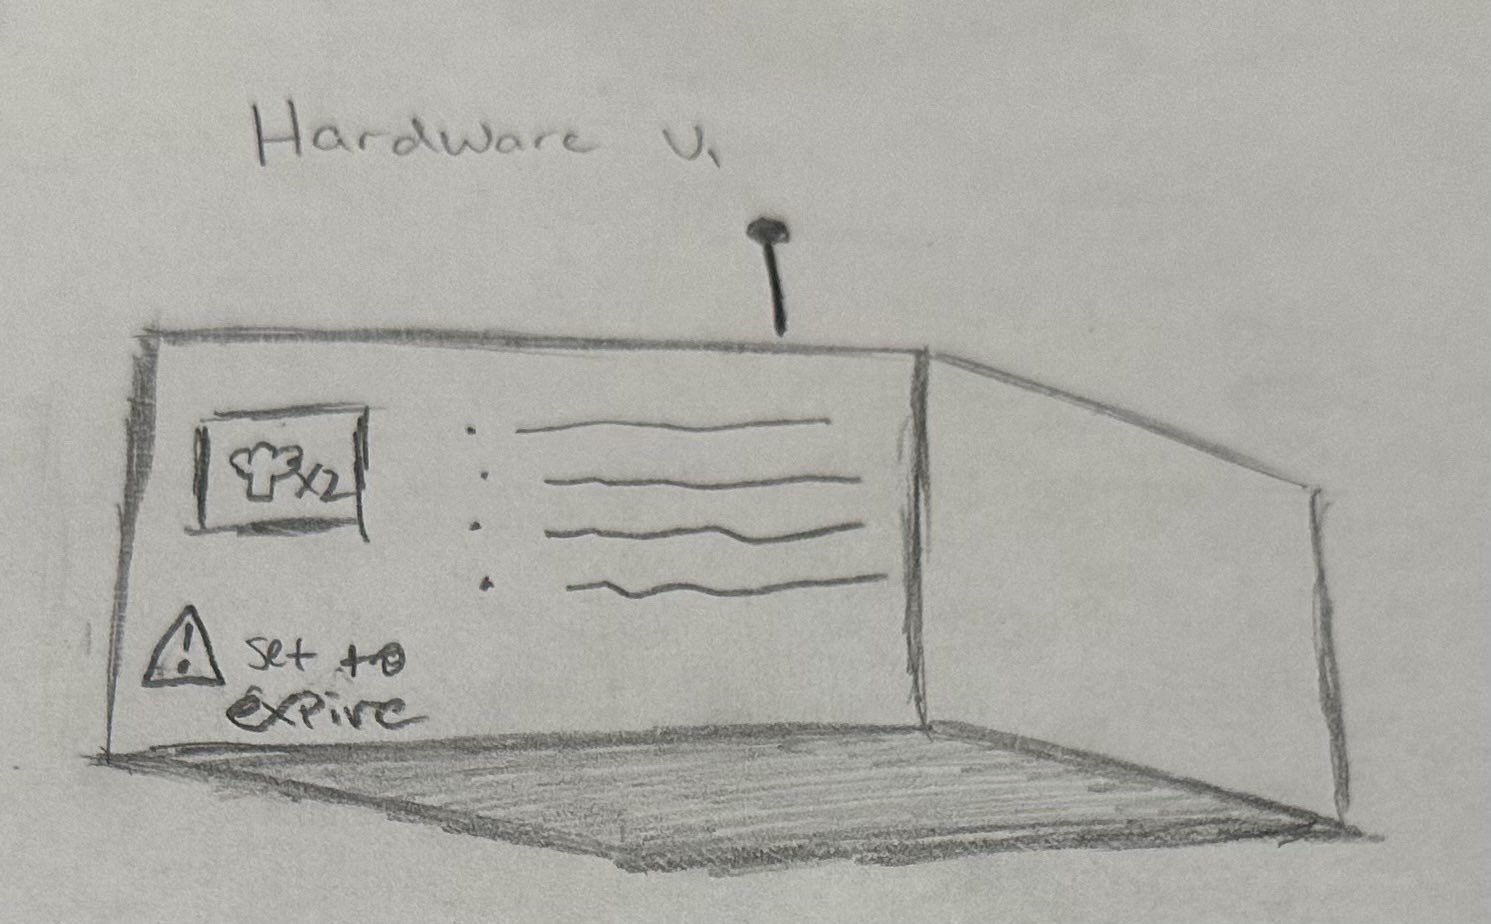 Hardware v1
x2
set to
expire